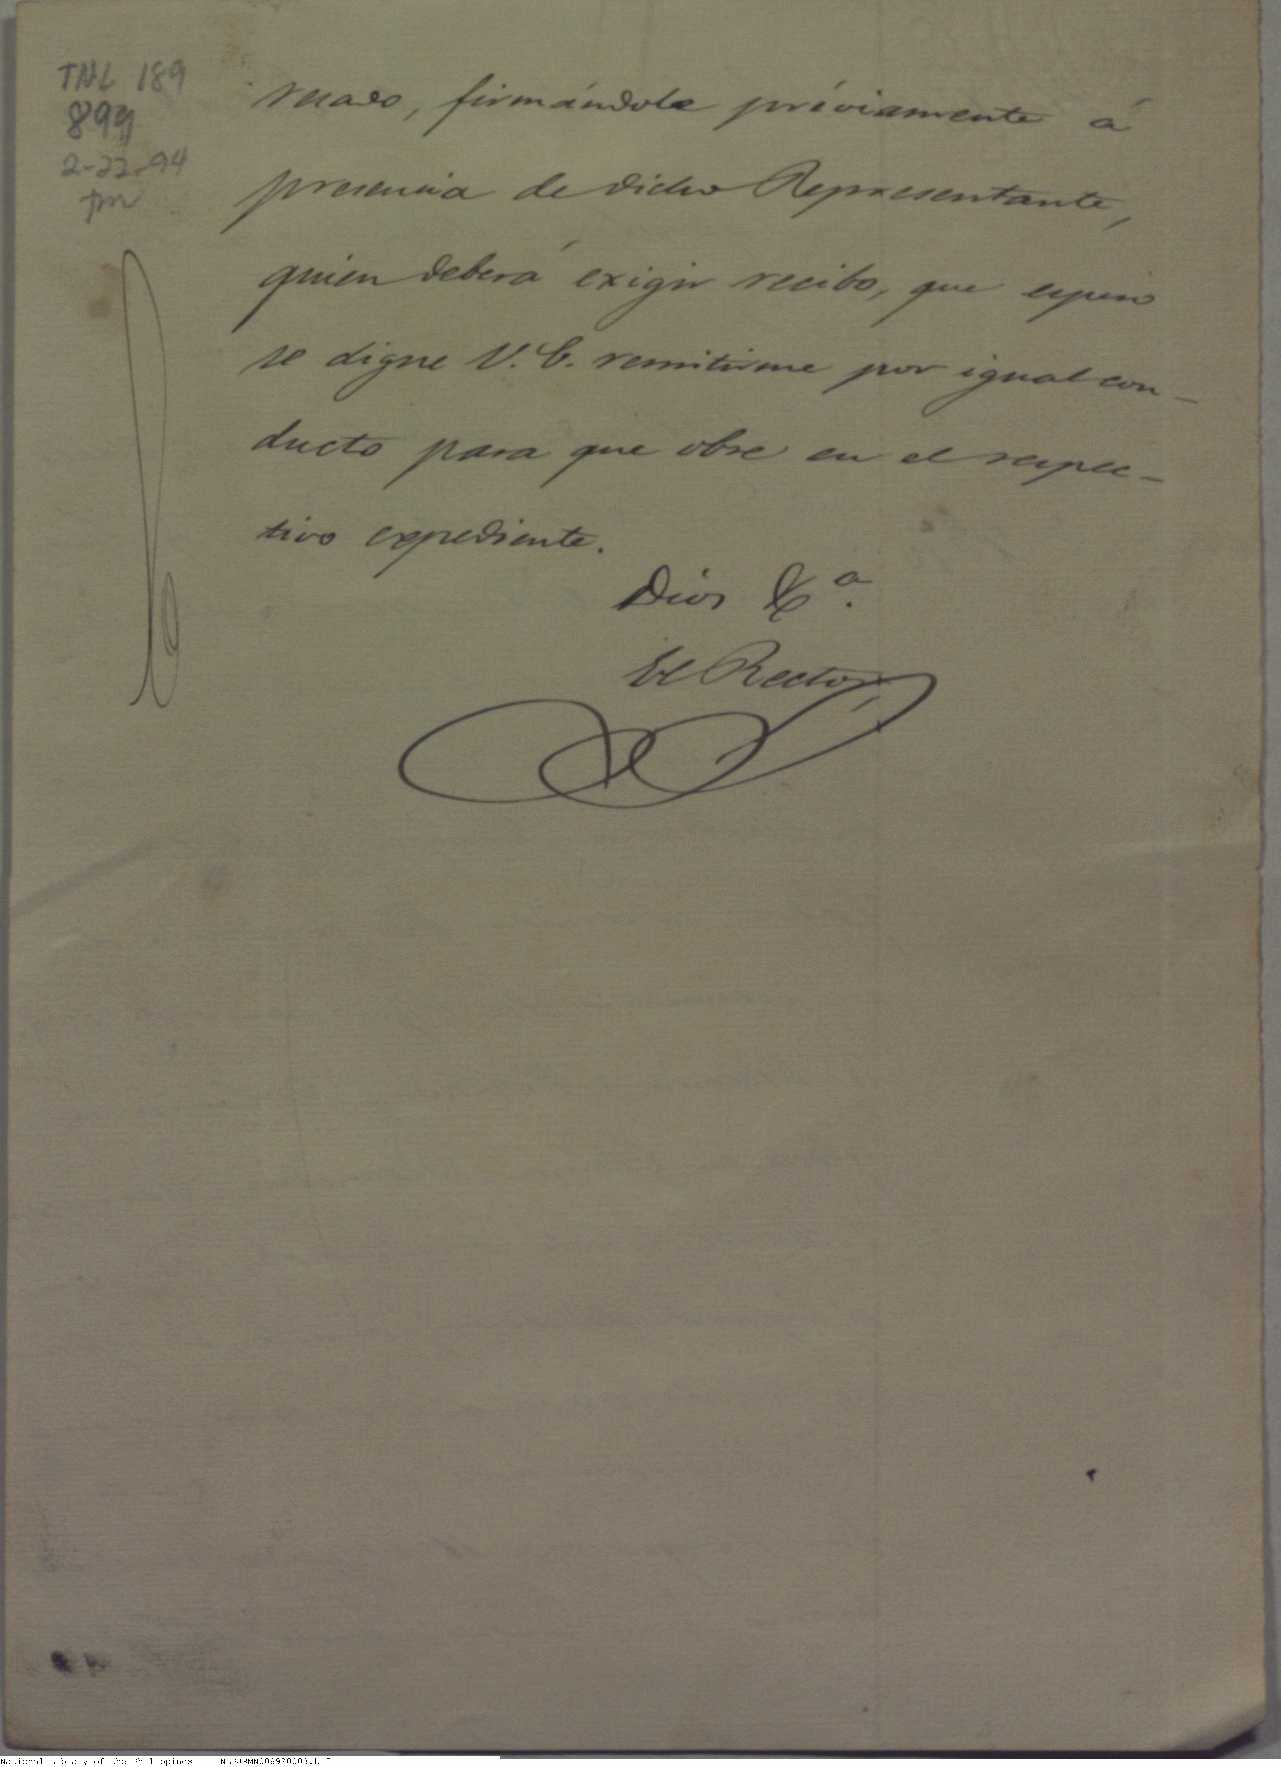 TNL 189
899
2-22-94
pm
resado, firmándola préviamente á
presencia de dicho Representante,
quien deberá exigir recibo, que espero
se digne V. E. remitirme por igual con-
ducto para que obre en el respec-
tivo expediente.
Dios &ª.
El Rector,
National Library of the Philippines